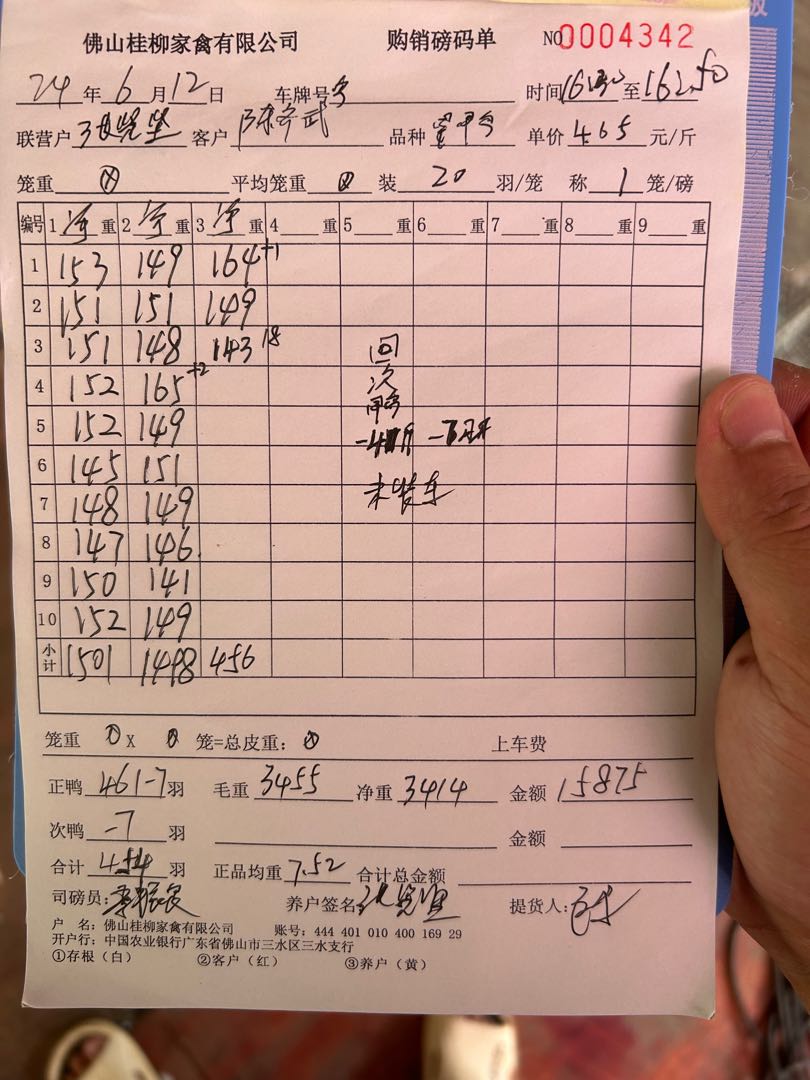 佛山桂柳家禽有限公司 购销磅码单 NO 0004342
24 年 6 月 12 日 车牌号 时间 至
联营户 客户 品种 单价 4.65 元/斤
笼重 0 平均笼重 0 装 20 羽/笼 称 1 笼/磅
编号 1 净 重 2 净 重 3 净 重 4 重 5 重 6 重 7 重 8 重 9 重
1 153 149 164 +1
2 151 151 149
3 151 148 143 18
回
4 152 165 +2
次
5 152 149
6 145 151
7 148 149
未装车
8 147 146
9 150 141
10 152 149
小计 1501 1498 456
笼重 0 X 0 笼=总皮重: 0 上车费
正鸭 461-7 羽 毛重 3455 净重 3414 金额 15875
次鸭 -7 羽 金额
合计 454 羽 正品均重 7.52 合计总金额
司磅员: 养户签名: 提货人:
户 名: 佛山桂柳家禽有限公司 账号: 444 401 010 400 169 29
开户行: 中国农业银行广东省佛山市三水区三水支行
①存根（白） ②客户（红） ③养户（黄）